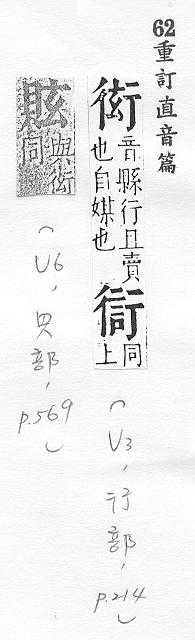 62重訂直音篇
衒音縣行且賣也自媒也衙同上
(V3,行部,p.214)
眩與衒同
(V6,貝部,p.569)